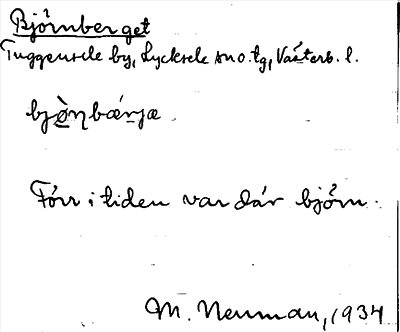 Björnberget
Tuggensele by, Lycksele sn o. tg, Västerb. l.
bjø̀ɳbǽrjæ
Förr i tiden var där björn.
M. Neuman, 1934